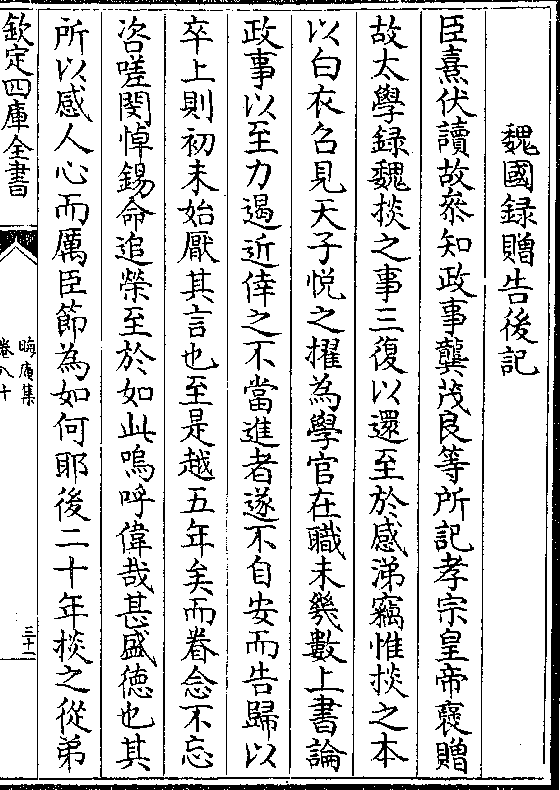 魏國録贈告後記
臣熹伏讀故叅知政事龔茂良等所記孝宗皇帝褒贈
故太學録魏掞之事三復以還至於感涕竊惟掞之本
以白衣召見天子悦之擢為學官在職未幾數上書論
政事以至力遏近倖之不當進者遂不自安而告歸以
卒上則初未始厭其言也至是越五年矣而眷念不忘
咨嗟閔悼錫命追榮至於如此嗚呼偉哉甚盛徳也其
所以感人心而厲臣節為如何耶後二十年掞之從弟
欽定四庫全書
晦庵集
卷八十
三十一